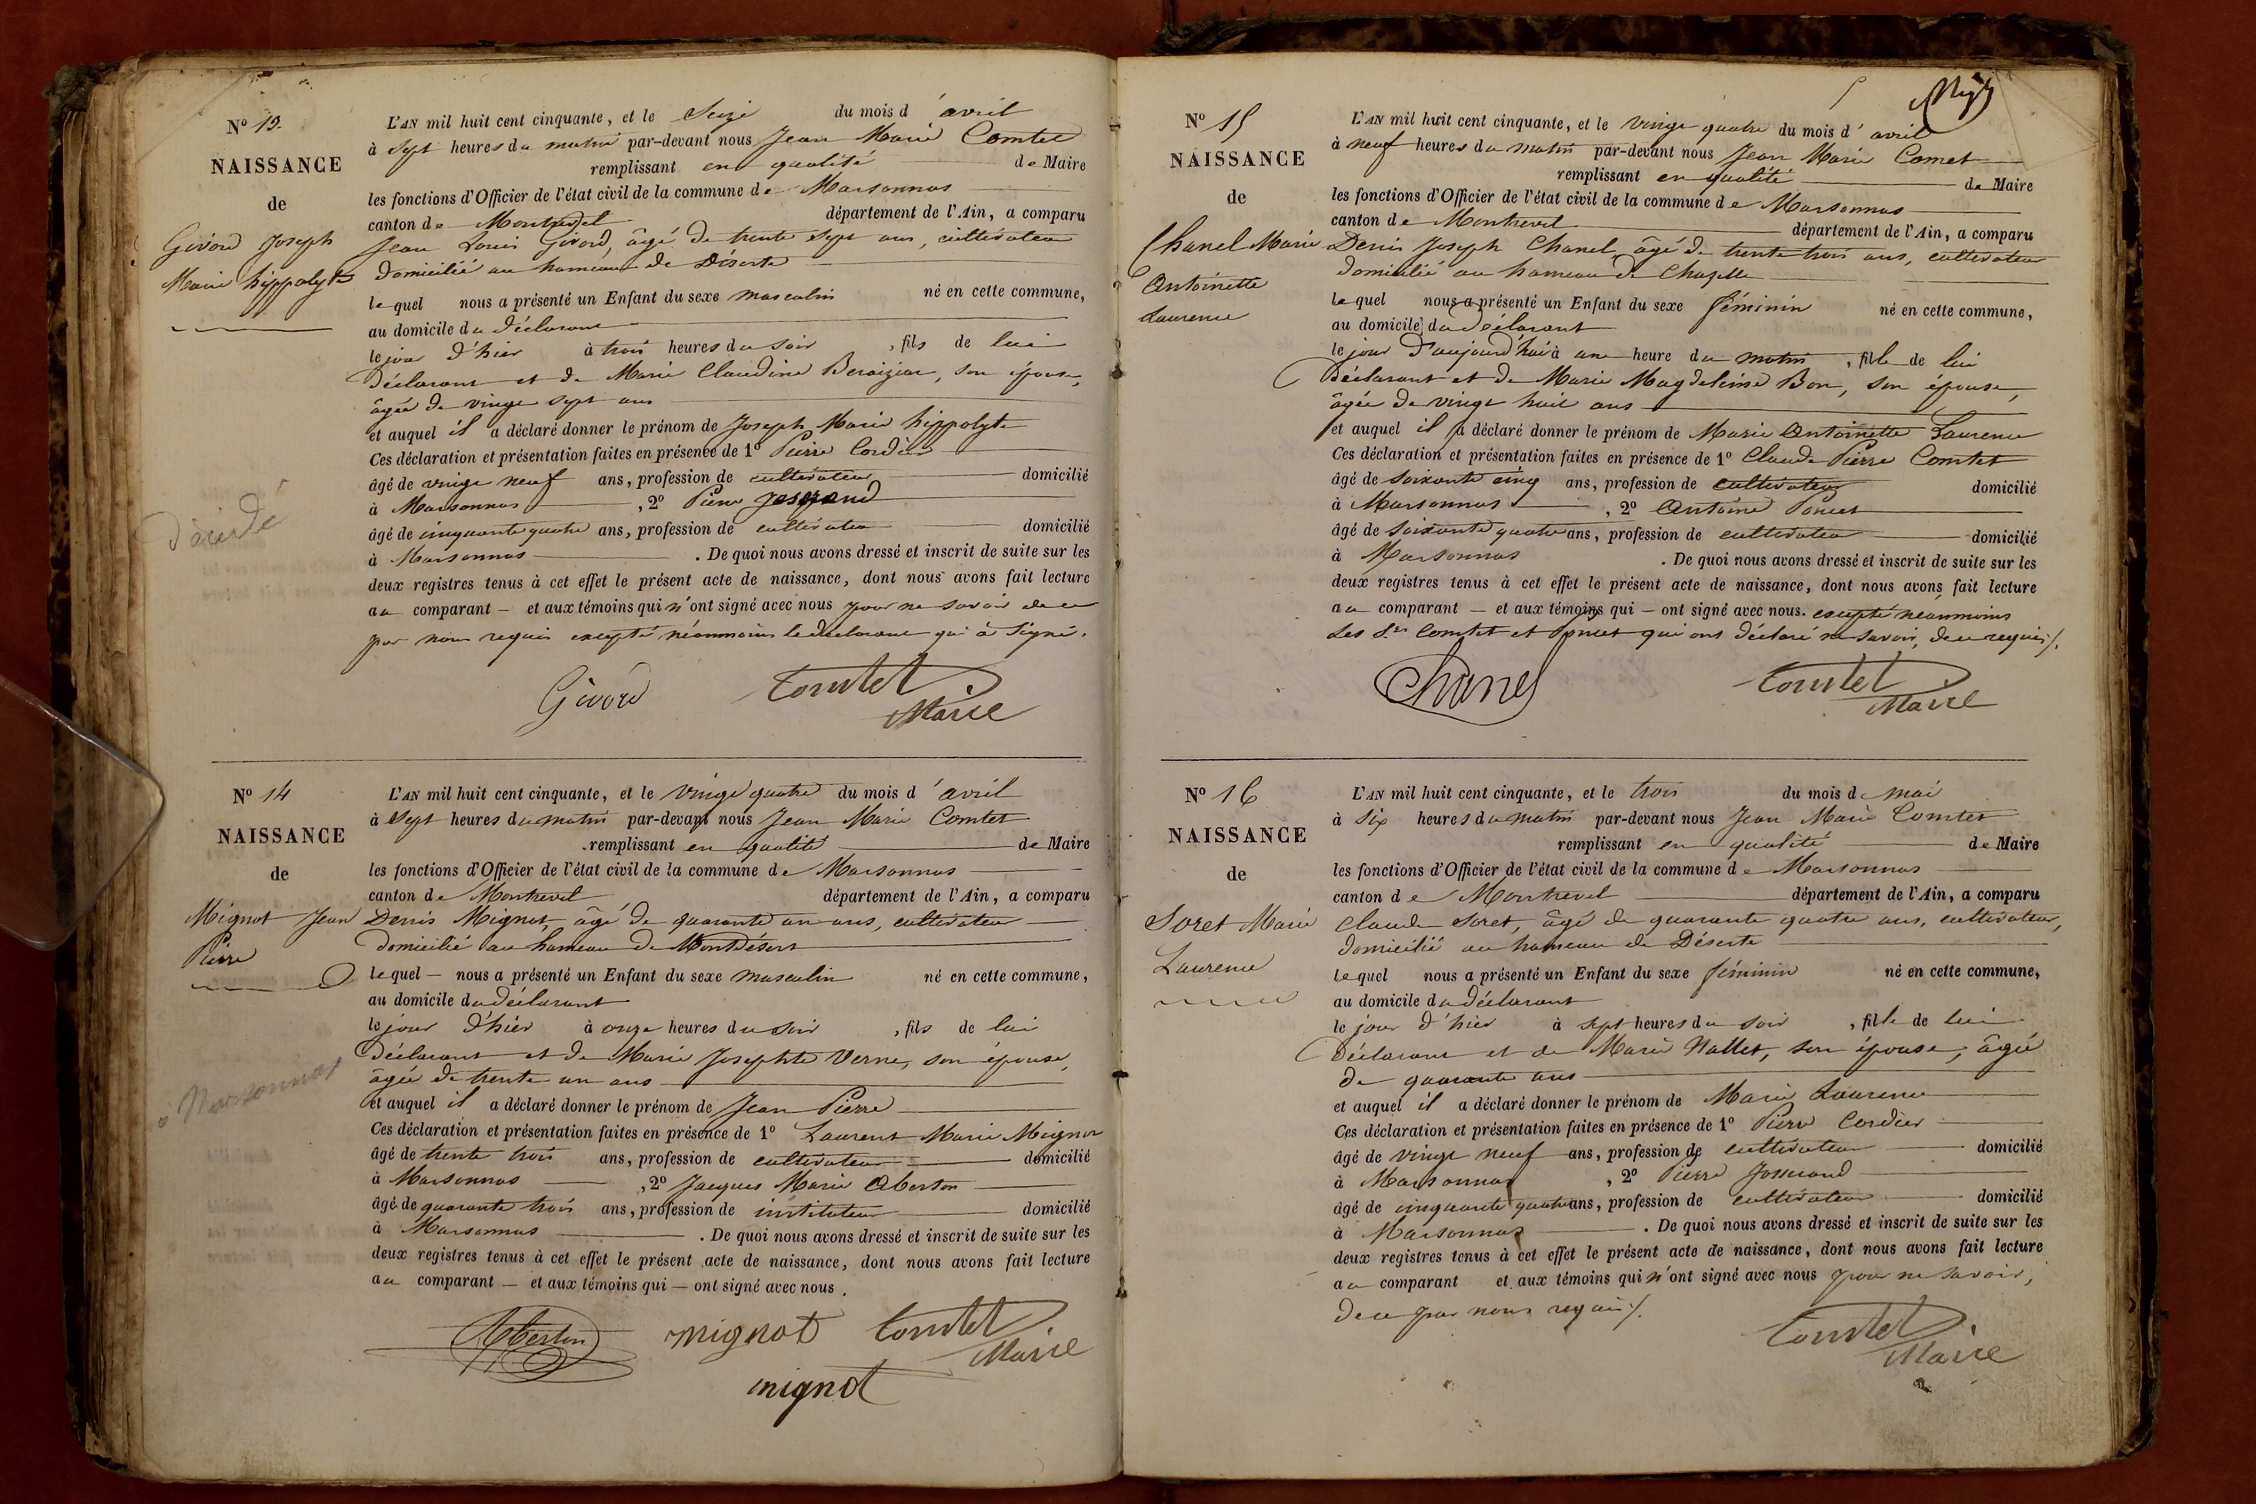 Nº 13.
NAISSANCE
de
Givord Joseph
Marie hippolyte
L'AN mil huit cent cinquante, et le Seize du mois d'avril
à sept heures du matin par-devant nous Jean Marie Comtet
remplissant en qualité de Maire
les fonctions d'Officier de l'état civil de la commune de Marsonnas
canton de Montrevel département de l'Ain, a comparu
Jean Louis Givord, âgé de trente sept ans, cultivateur
domicilié au hameau de Déserte
lequel nous a présenté un Enfant du sexe masculin né en cette commune,
au domicile du déclarant
le jour d'hier à trois heures du soir, fils de lui
déclarant et de Marie Claudine Beraizier, son épouse,
âgée de vingt sept ans
et auquel il a déclaré donner le prénom de Joseph Marie hippolyte
Ces déclaration et présentation faites en présence de 1º Pierre Cordier
âgé de vingt neuf ans, profession de cultivateur domicilié
à Marsonnas, 2º Pierre Josserand
âgé de cinquante quatre ans, profession de cultivateur domicilié
à Marsonnas. De quoi nous avons dressé et inscrit de suite sur les
deux registres tenus à cet effet le présent acte de naissance, dont nous avons fait lecture
au comparant — et aux témoins qui n'ont signé avec nous pour ne savoir de ce
par nous requis excepté néanmoins le déclarant qui a signé.
Givord Comtet
Maire
Nº 14
NAISSANCE
de
Mignot Jean
Pierre
à Marsonnas
L'AN mil huit cent cinquante, et le vingt quatre du mois d'avril
à sept heures du matin par-devant nous Jean Marie Comtet
remplissant en qualité de Maire
les fonctions d'Officier de l'état civil de la commune de Marsonnas
canton de Montrevel département de l'Ain, a comparu
Denis Mignot, âgé de quarante un ans, cultivateur
domicilié au hameau de Montdésert
lequel — nous a présenté un Enfant du sexe masculin né en cette commune,
au domicile du déclarant
le jour d'hier à onze heures du soir, fils de lui
déclarant et de Marie Josephte Verne, son épouse,
âgée de trente un ans
et auquel il a déclaré donner le prénom de Jean Pierre
Ces déclaration et présentation faites en présence de 1º Laurent Marie Mignot
âgé de trente trois ans, profession de cultivateur domicilié
à Marsonnas, 2º Jacques Marie Oberton
âgé de quarante trois ans, profession de instituteur domicilié
à Marsonnas. De quoi nous avons dressé et inscrit de suite sur les
deux registres tenus à cet effet le présent acte de naissance, dont nous avons fait lecture
au comparant — et aux témoins qui — ont signé avec nous.
Oberton mignot Comtet
Maire
mignot
Nº 15
NAISSANCE
de
Chanel Marie
Antoinette
Laurence
L'AN mil huit cent cinquante, et le vingt quatre du mois d'avril
à neuf heures du matin par-devant nous Jean Marie Comet
remplissant en qualité de Maire
les fonctions d'Officier de l'état civil de la commune de Marsonnas
canton de Montrevel département de l'Ain, a comparu
Denis Joseph Chanel, âgé de trente trois ans, cultivateur
domicilié au hameau de Chazelle
lequel nous a présenté un Enfant du sexe féminin né en cette commune,
au domicile du déclarant
le jour d'aujourd'hui à une heure du matin, fille de lui
déclarant et de Marie Magdeleine Bon, son épouse,
âgée de vingt huit ans
et auquel il a déclaré donner le prénom de Marie Antoinette Laurence
Ces déclaration et présentation faites en présence de 1º Claude Pierre Comtet
âgé de soixante cinq ans, profession de cultivateur domicilié
à Marsonnas, 2º Antoine Poncet
âgé de soixante quatre ans, profession de cultivateur domicilié
à Marsonnas. De quoi nous avons dressé et inscrit de suite sur les
deux registres tenus à cet effet le présent acte de naissance, dont nous avons fait lecture
au comparant — et aux témoins qui — ont signé avec nous. excepté néanmoins
les Srs Comtet et Poncet qui ont déclaré ne savoir, de ce requis/.
Chanel Comtet
Maire
Nº 16
NAISSANCE
de
Soret Marie
Laurence
L'AN mil huit cent cinquante, et le trois du mois de mai
à six heures du matin par-devant nous Jean Marie Comtet
remplissant en qualité de Maire
les fonctions d'Officier de l'état civil de la commune de Marsonnas
canton de Montrevel département de l'Ain, a comparu
Claude Soret, âgé de quarante quatre ans, cultivateur,
domicilié au hameau de Déserte
lequel nous a présenté un Enfant du sexe féminin né en cette commune,
au domicile du déclarant
le jour d'hier à sept heures du soir, fille de lui
déclarant et de Marie Nallet, son épouse, âgée
de quarante ans
et auquel il a déclaré donner le prénom de Marie Laurence
Ces déclaration et présentation faites en présence de 1º Pierre Cordier
âgé de vingt neuf ans, profession de cultivateur domicilié
à Marsonnas, 2º Pierre Josserand
âgé de cinquante quatre ans, profession de cultivateur domicilié
à Marsonnas. De quoi nous avons dressé et inscrit de suite sur les
deux registres tenus à cet effet le présent acte de naissance, dont nous avons fait lecture
au comparant et aux témoins qui n'ont signé avec nous pour ne savoir,
de ce par nous requis/.
Comtet
Maire